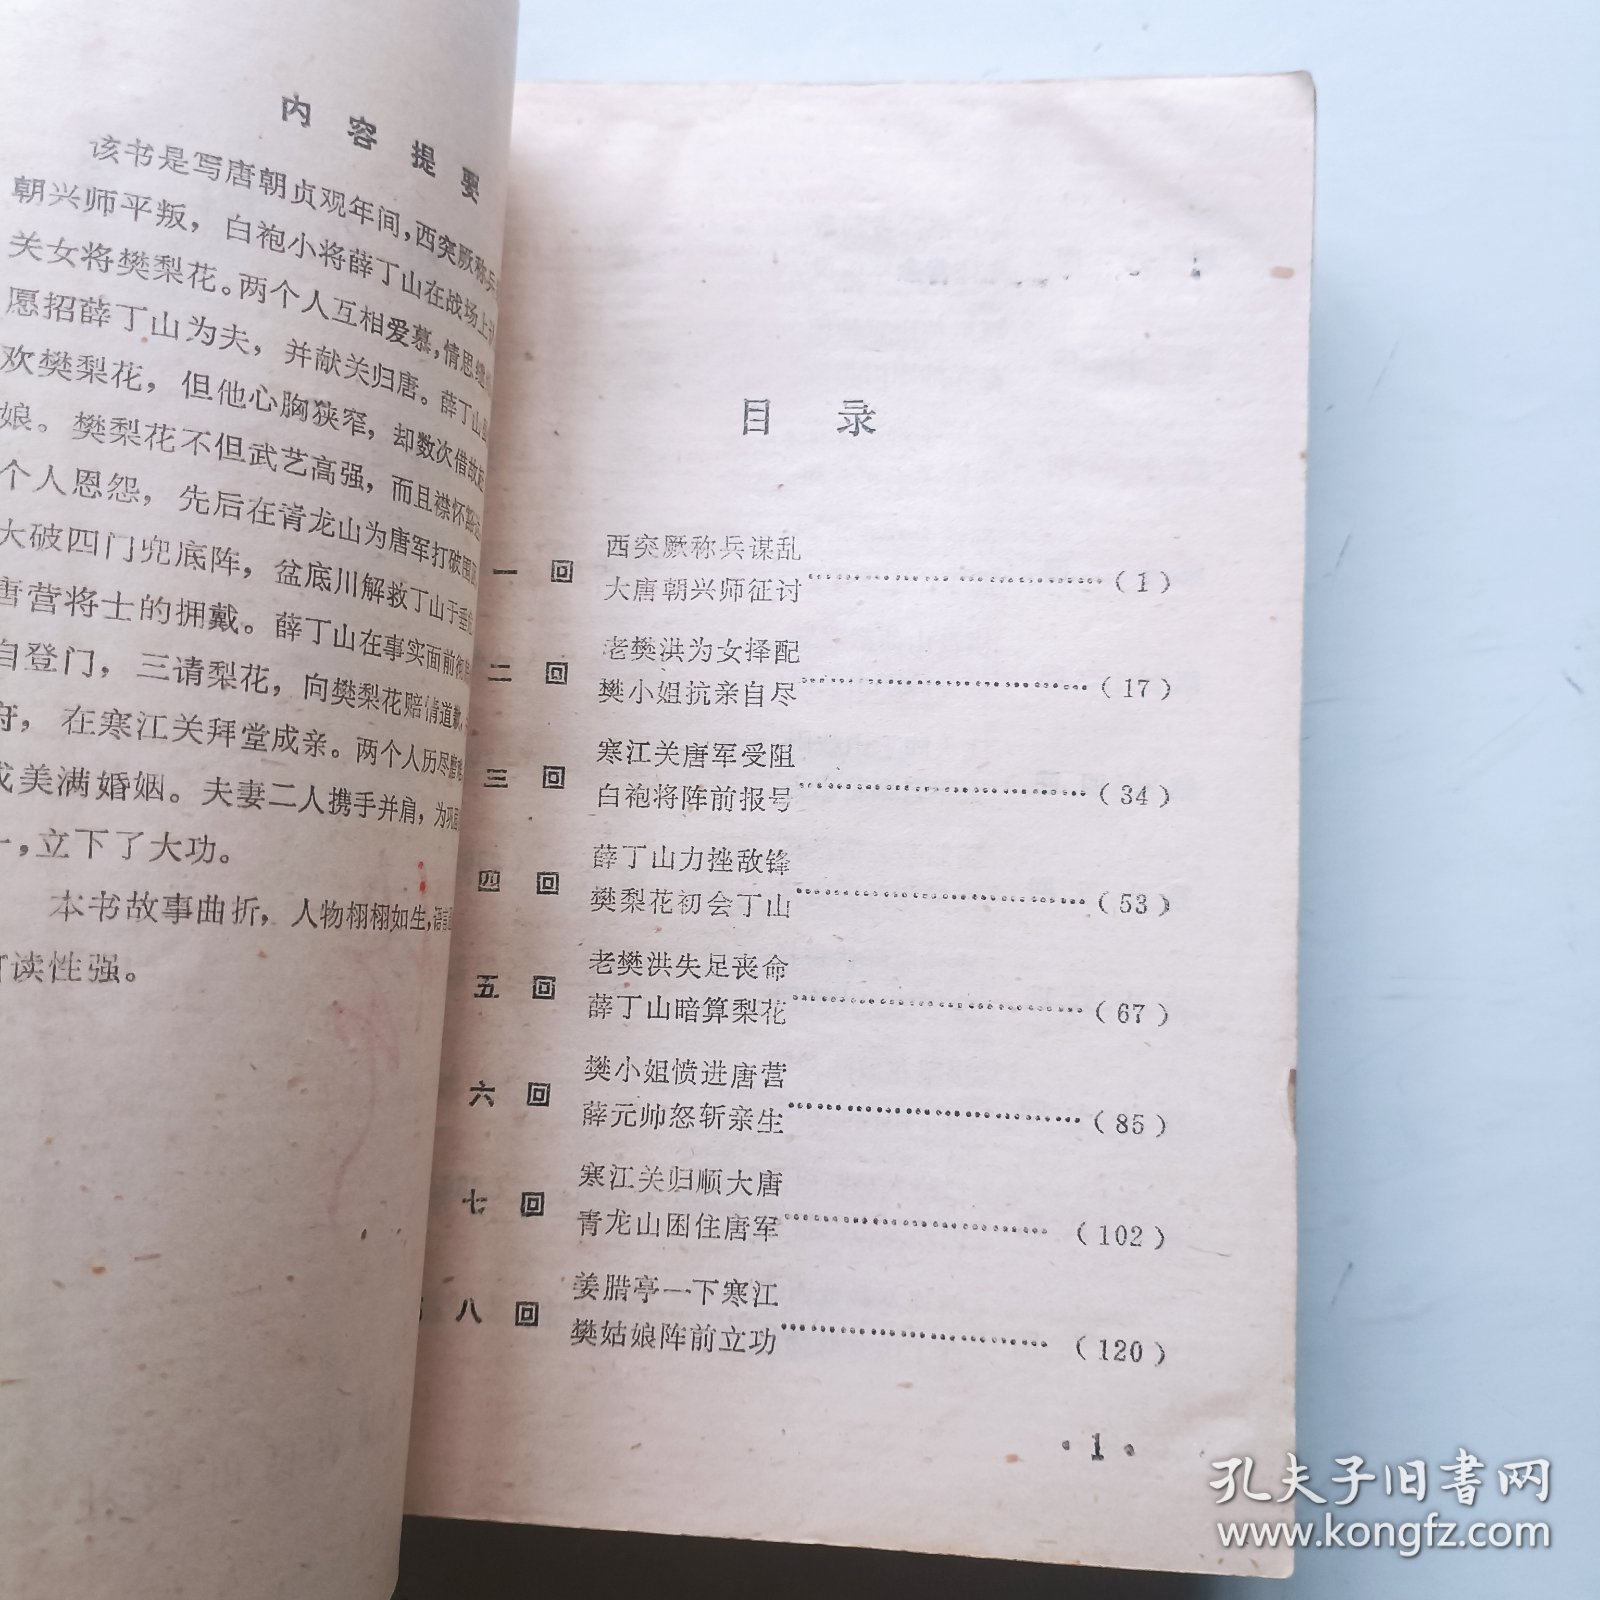 内容提要
该书是写唐朝贞观年间，西突厥称兵
朝兴师平叛，白袍小将薛丁山在战场上
关女将樊梨花。两个人互相爱慕，情思
愿招薛丁山为夫，并献关归唐。薛丁山
欢樊梨花，但他心胸狭窄，却数次借故
娘。樊梨花不但武艺高强，而且襟怀
个人恩怨，先后在青龙山为唐军打破围
大破四门兜底阵，盆底川解救丁山于垂
唐营将士的拥戴。薛丁山在事实面前
自登门，三请梨花，向樊梨花赔情道歉，
府，在寒江关拜堂成亲。两个人历尽
成美满婚姻。夫妻二人携手并肩，为
，立下了大功。
本书故事曲折，人物栩栩如生，语言
可读性强。
目录
一回 西突厥称兵谋乱
大唐朝兴师征讨……………………（1）
二回 老樊洪为女择配
樊小姐抗亲自尽……………………（17）
三回 寒江关唐军受阻
白袍将阵前报号……………………（34）
四回 薛丁山力挫敌锋
樊梨花初会丁山……………………（53）
五回 老樊洪失足丧命
薛丁山暗算梨花……………………（67）
六回 樊小姐愤进唐营
薛元帅怒斩亲生……………………（85）
七回 寒江关归顺大唐
青龙山困住唐军……………………（102）
八回 姜腊亭一下寒江
樊姑娘阵前立功……………………（120）
·1·
孔夫子旧书网
www.kongfz.com